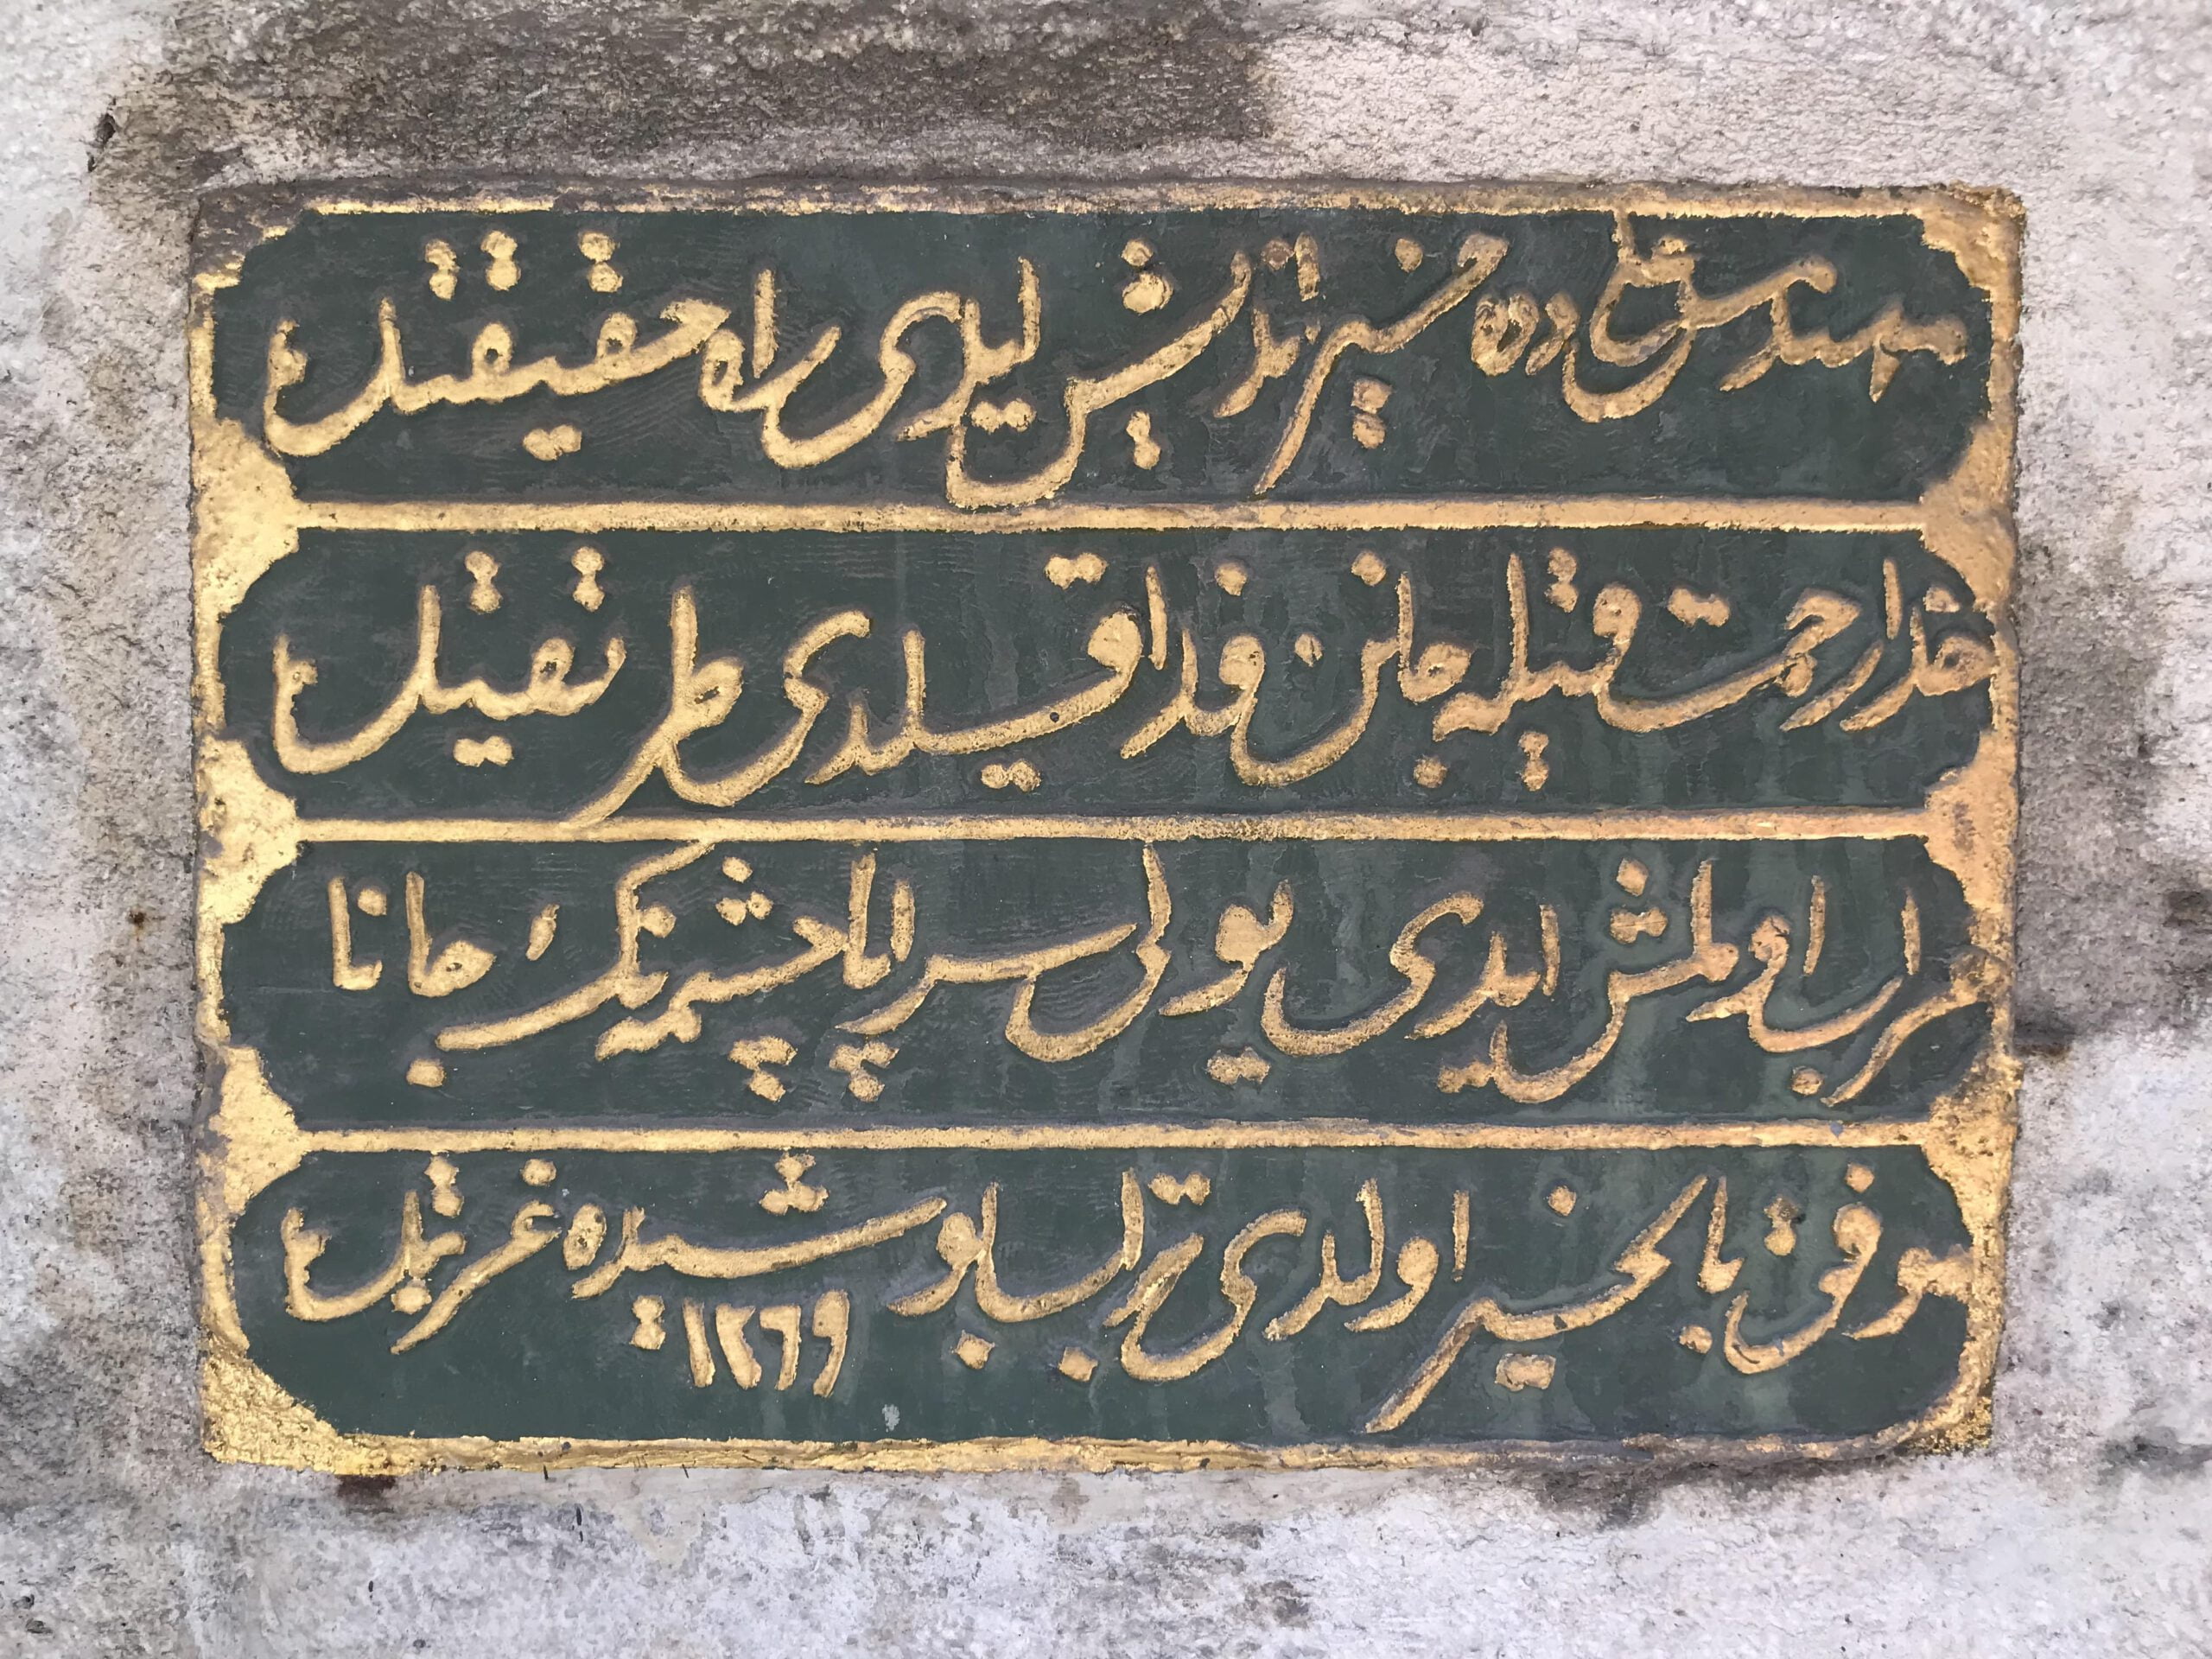 مهندس علی دده خیر اندیش ایلدی راه حقیقتله
خدا رحمت قیله جانن فدا قیلدی طریقتله
خراب اولمش ایدی یولی سراپا چشمه نك جانا
موفق بالخیر اولدی ترلبابو شیده غربتله
١٢٦٩